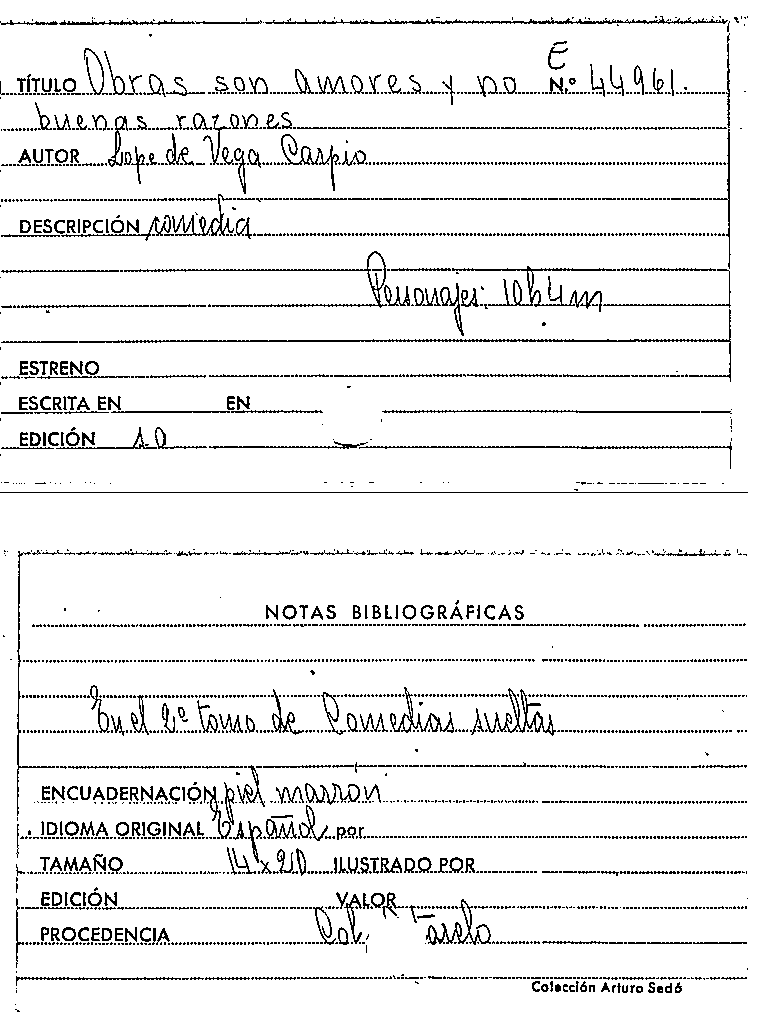 E
TÍTULO Obras son amores y no N.º 44961.
buenas razones
AUTOR Lope de Vega Carpio
DESCRIPCIÓN comedia
Personajes: 10h4m
ESTRENO
ESCRITA EN EN
EDICIÓN 10
NOTAS BIBLIOGRÁFICAS
En el 2º tomo de Comedias sueltas
ENCUADERNACIÓN piel marron
IDIOMA ORIGINAL Español por
TAMAÑO 14x20 ILUSTRADO POR
EDICIÓN VALOR
PROCEDENCIA Col.
Colección Arturo Sedó